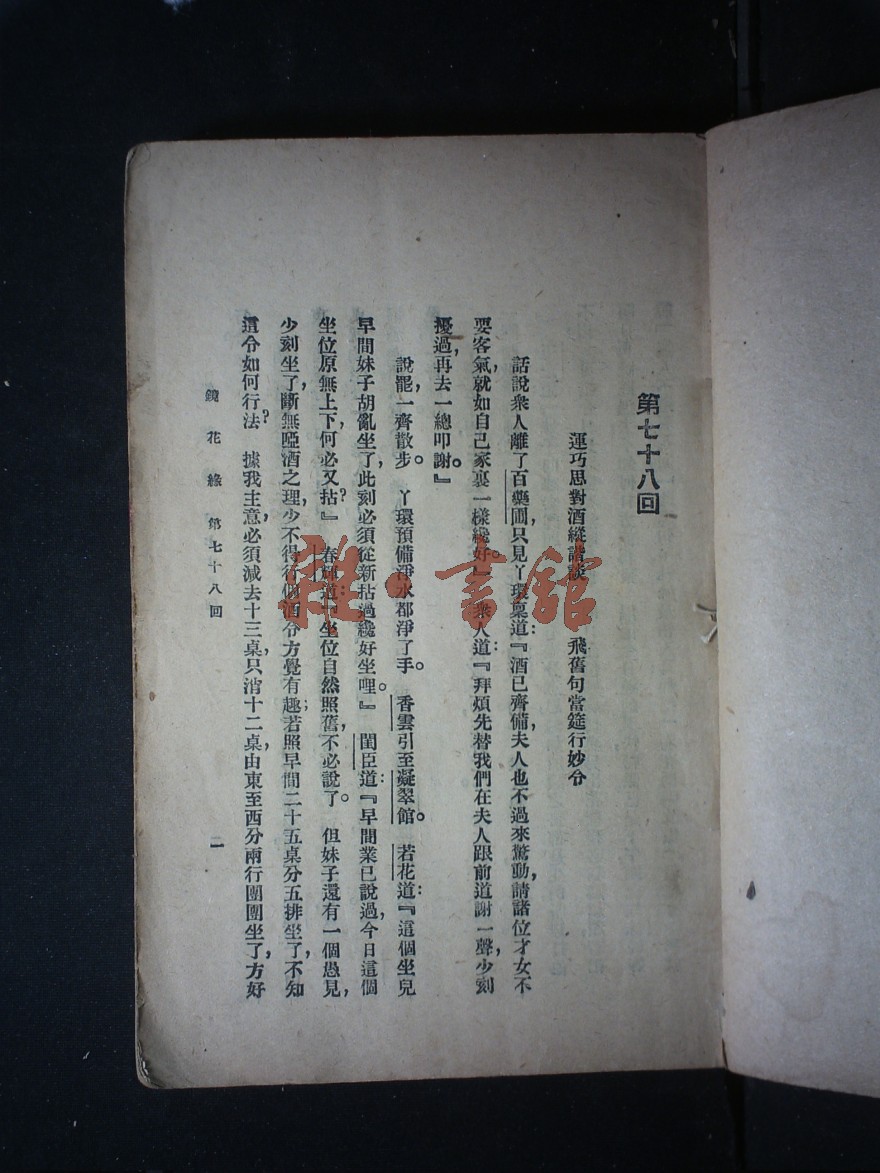 第七十八回
運巧思對酒縱諧談　飛舊句當筵行妙令
話說衆人離了百藥圃，只見丫環稟道：『酒已齊備，夫人也不過來驚動，請諸位才女不
要客氣，就如自己家裏一樣纔好。』衆人道：『拜煩先替我們在夫人跟前道謝一聲，少刻
擾過，再去一總叩謝。』
說罷，一齊散步。丫環預備淨水都淨了手。香雲引至凝翠館。若花道：『這個坐兒
早間妹子胡亂坐了，此刻必須從新拈過纔好坐哩。』閨臣道：『早間業已說過，今日這個
坐位原無上下，何必又拈？』春輝道：『坐位自然照舊，不必說了。但妹子還有一個愚見，
少刻坐了，斷無啞酒之理，少不得行個酒令方覺有趣；若照早間二十五桌分五排坐了，不知
這令如何行法？據我主意，必須減去十三桌，只消十二桌，由東至西分兩行團團坐了，方好
鏡花緣　第七十八回
一
雜·書館